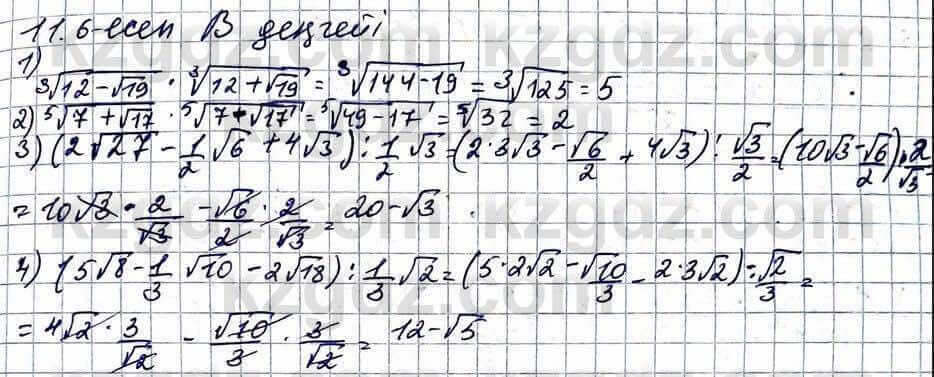 11.6-есеп В деңгейі
1)
∛(12-√19) · ∛(12+√19) = ∛(144-19) = ∛125 = 5
2) ⁵√(7+√17) · ⁵√(7-√17) = ⁵√(49-17) = ⁵√32 = 2
3) (2√27 - 1/2 √6 + 4√3) : 1/2 √3 = (2·3√3 - √6/2 + 4√3) : √3/2 = (10√3 - √6/2) · 2/√3 =
= 10√3 · 2/√3 - √6/2 · 2/√3 = 20 - √3
4) (5√8 - 1/3 √10 - 2√18) : 1/3 √2 = (5·2√2 - √10/3 - 2·3√2) : √2/3 =
= 4√2 · 3/√2 - √10/3 · 3/√2 = 12 - √5
kzgdz.com